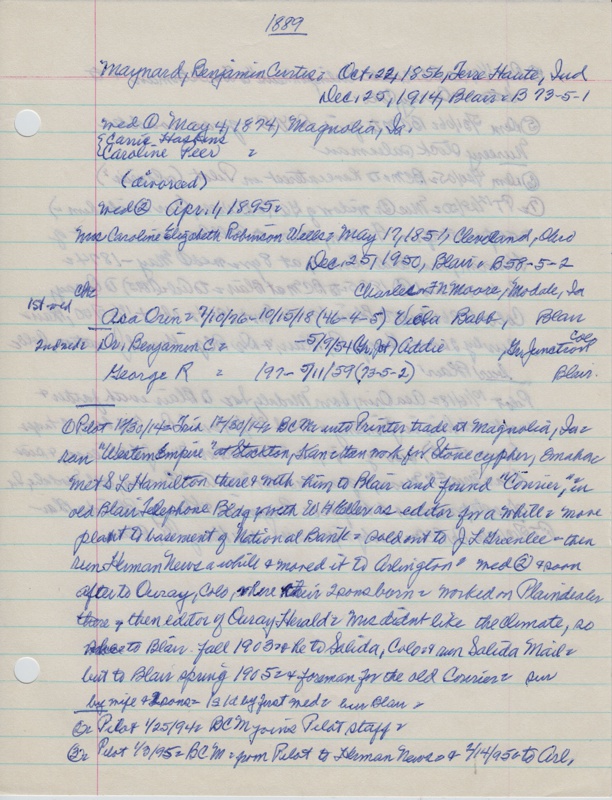 1889
Maynard, Benjamin Curtis = Oct. 22, 1856, Terre Haute, Ind
Dec, 25, 1914, Blair = B 73-5-1
med ① May 4, 1874, Magnolia, Ia.
Carrie Hopkins
Caroline Peer =
(divorced)
med ② Apr. 1, 1895 =
Mrs Caroline Elizabeth Robinson Wells = May 17, 1851, Cleveland, Ohio
Dec, 25, 1950, Blair = B 58-5-2
Chr Charles - F N Moore, Modale, Ia
1st med Asa Orin = 2/10/76 - 10/15/18 (46-4-5) Viola Babb, Blair
2nd med = Dr. Benjamin C = - 5/9/54 (Gr, Jct) Addie Gr. Junction Colo
George R = 1897 - 5/11/59 (73-5-2) Blair.
① Pilot 12/30/14 = Trib 12/30/14 = BCM = into Printer trade at Magnolia, Ia =
ran "Western Empire" at Stockton, Kan = then work for Stonecypher, Omaha =
met S L Hamilton there & with him to Blair and found "Courier," in
old Blair Telephone Bldg = with W H Eller as editor for a while = move
plant to basement of National Bank = sold out to J L Greenlee = then
run Herman News a while & moved it to Arlington = med ② & soon
after to Ouray, Colo, where their 2 sons born = worked on Plaindealer
there & then editor of Ouray Herald = Mrs didnt like the climate, so
to Blair. fall 1903 = he to Salida, Colo & own Salida Mail =
but to Blair spring 1905 = & foreman for the old Courier = sur
by wife & 2 sons = 1s 1d by first med = bur Blair =
② Pilot 1/25/94 = BCM joins Pilot staff =
③ Pilot 1/3/95 = BCM = from Pilot to Herman News = & 2/14/95 = to Arl,